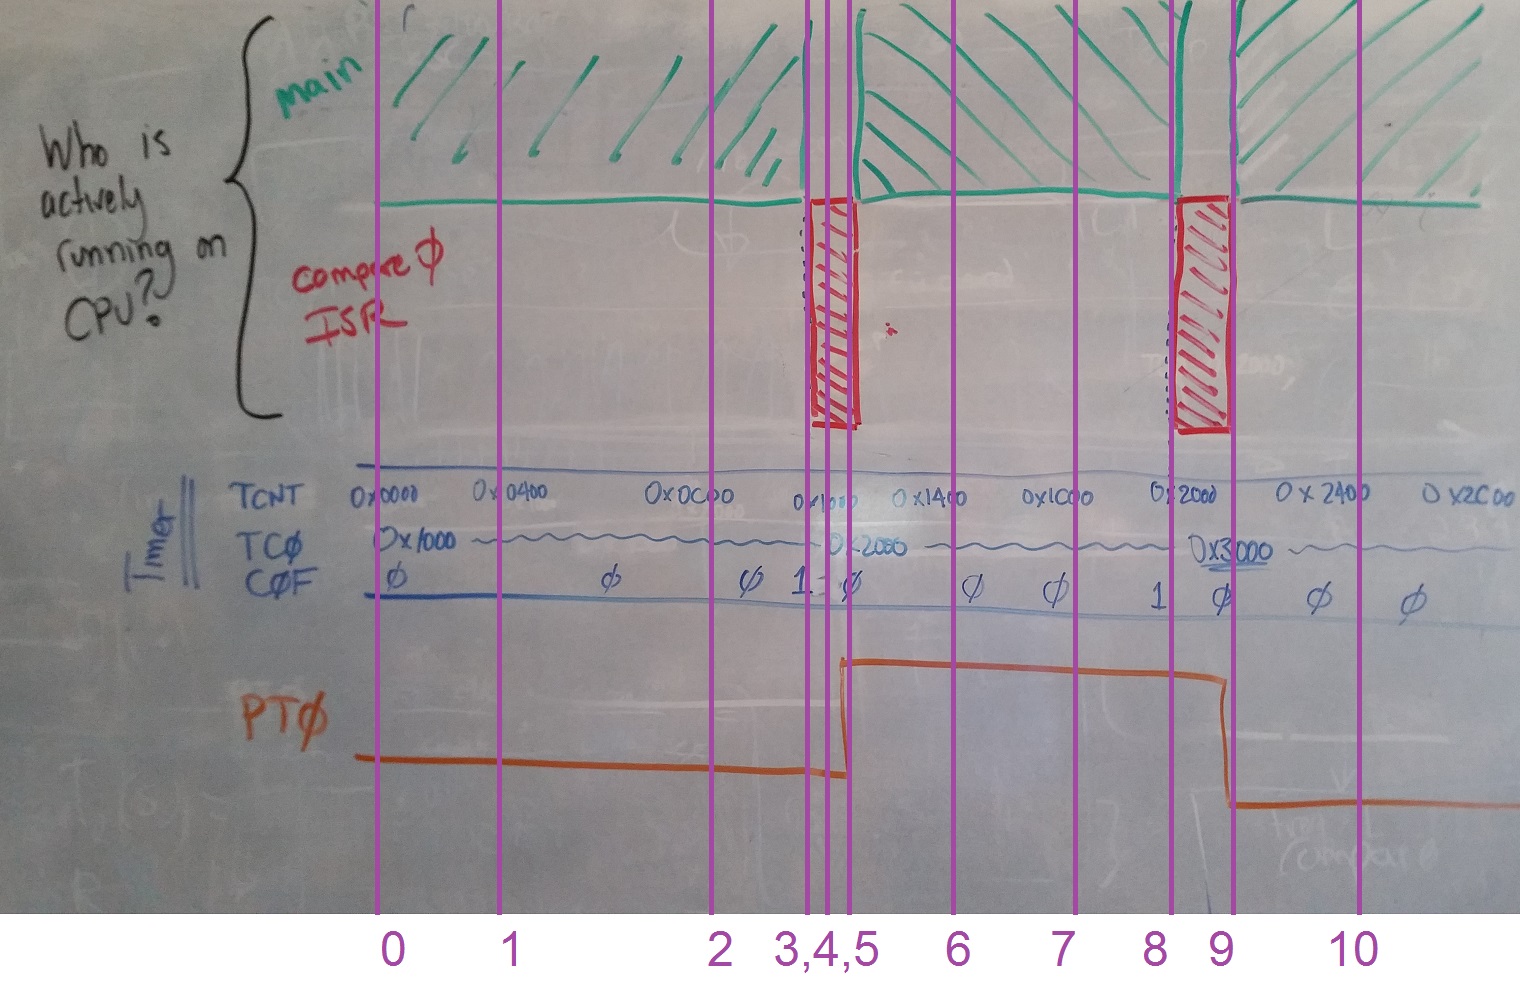 main
Who is
actively
running on
CPU?
compare Ø
ISR
Timer
TCNT 0x0000 0x0400 0x0C00 0x1000 0x1400 0x1C00 0x2000 0x2400 0x2C00
TCØ 0x1000 0x2000 0x3000
CØF Ø Ø Ø 1 Ø Ø Ø 1 Ø Ø Ø
PTØ
0 1 2 3,4,5 6 7 8 9 10